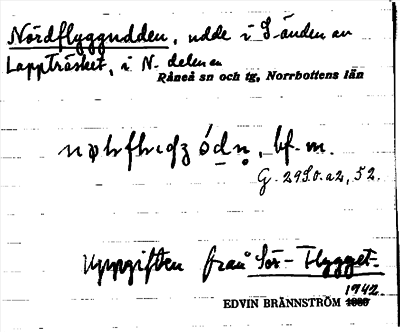 Nördflyggudden, udde i S-änden av
Lappträsket, i N-delen av
Råneå sn och tg, Norrbottens län
bf. m.
G. 29 S. o. a 2, 52.
Uppgiften från Sör-Flygget.
1942
EDVIN BRÄNNSTRÖM